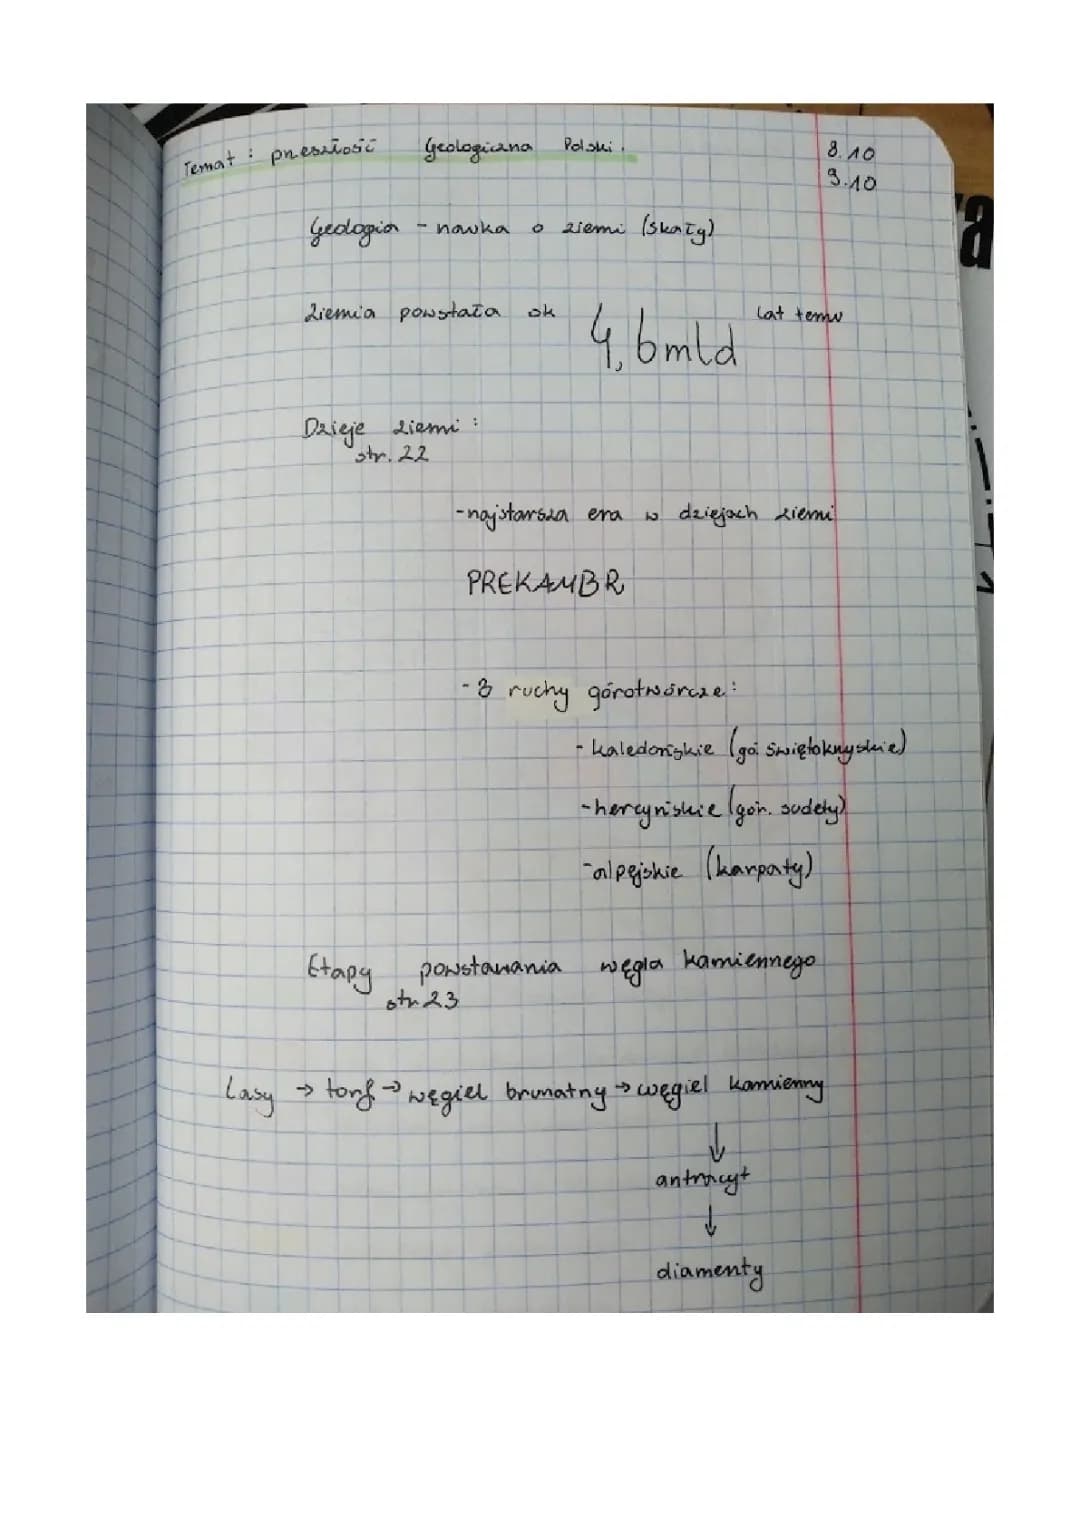 Temat : przeszłość Geologiczna Polski.
8.10
9.10
Geologia - nauka o ziemi (skały)
Ziemia powstała ok 4,6 mld lat temu
Dzieje ziemi :
str. 22
- najstarsza era w dziejach ziemi
PREKAMBR
- 3 ruchy górotwórcze:
- kaledońskie (gó. świętokrzyskie)
- hercyńskie (gór. sudety)
- alpejskie (karpaty)
Etapy powstawania węgla kamiennego
str 23
Lasy → torf → węgiel brunatny → węgiel kamienny
↓
antracyt
↓
diamenty